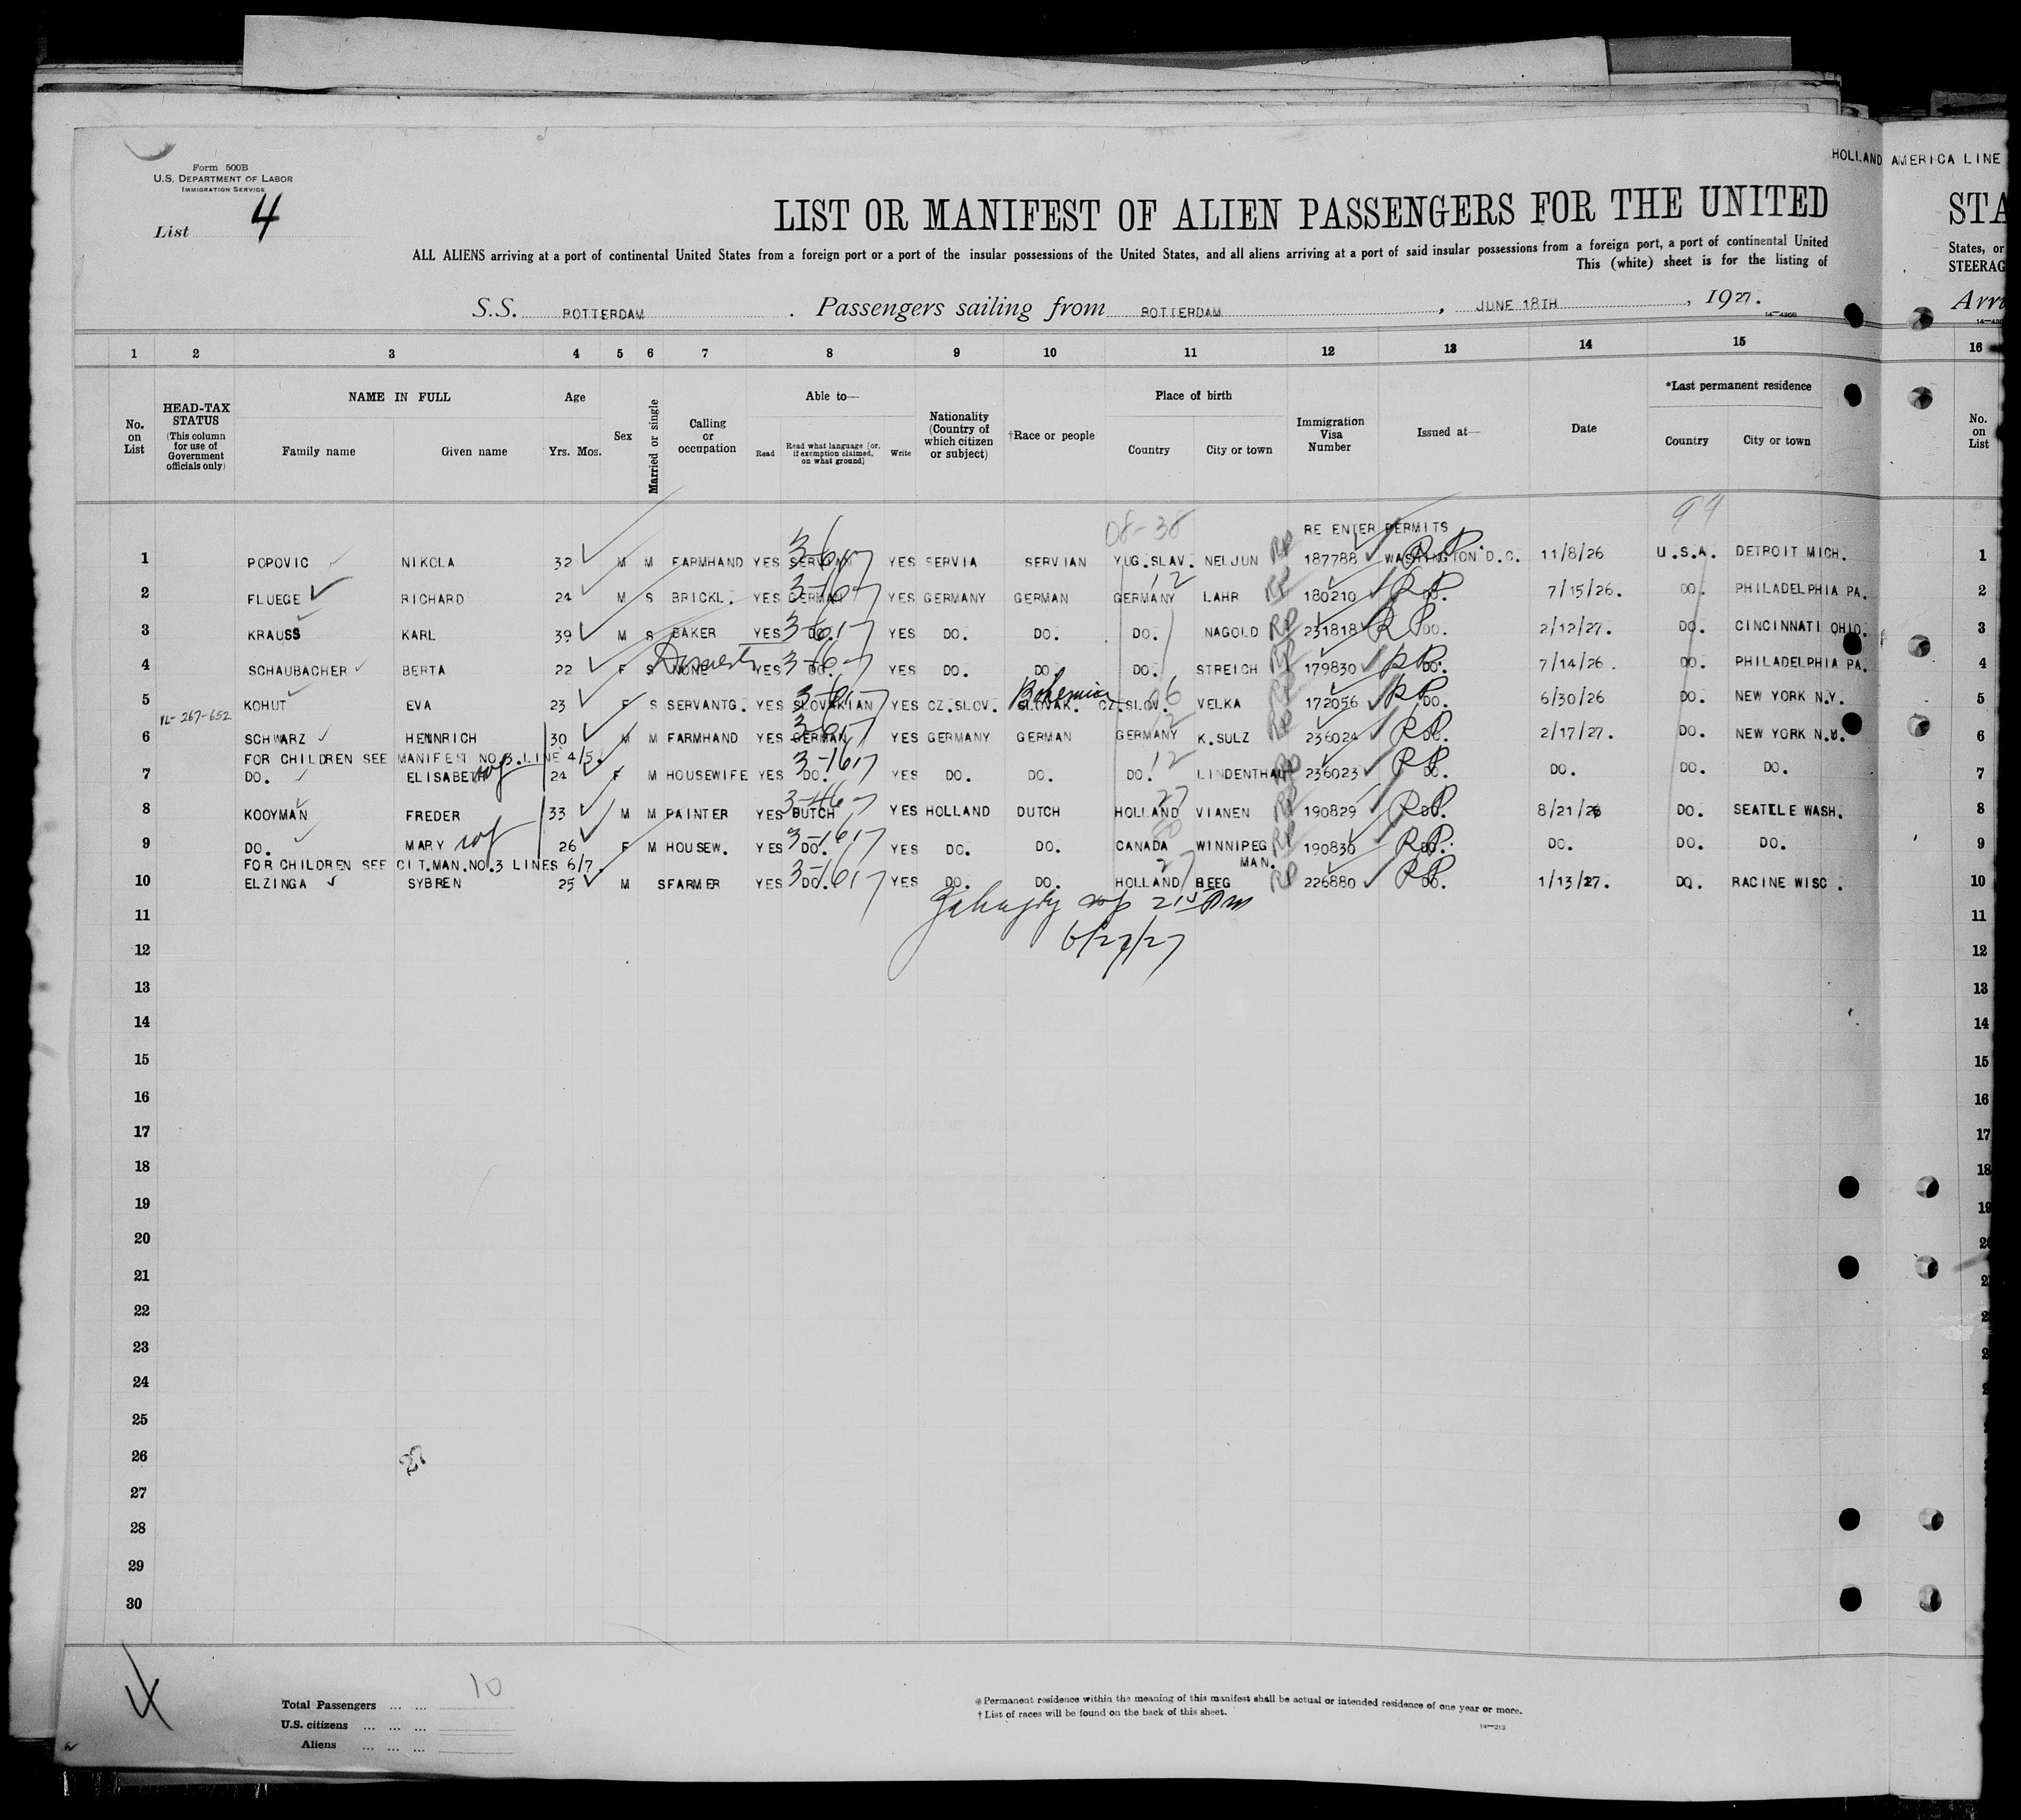 HOLLAND AMERICA LINE
Form 500B
U.S. DEPARTMENT OF LABOR
IMMIGRATION SERVICE
List 4
LIST OR MANIFEST OF ALIEN PASSENGERS FOR THE UNITED STA
ALL ALIENS arriving at a port of continental United States from a foreign port or a port of the insular possessions of the United States, and all aliens arriving at a port of said insular possessions from a foreign port, a port of continental United States, or
This (white) sheet is for the listing of STEERAG
S.S. ROTTERDAM. Passengers sailing from ROTTERDAM, JUNE 18TH, 1927. Arri
1 2 3 4 5 6 7 8 9 10 11 12 13 14 15 16
No. on List
HEAD-TAX STATUS (This column for use of Government officials only)
NAME IN FULL Family name Given name
Age Yrs. Mos.
Sex
Married or single
Calling or occupation
Able to— Read Read what language [or, if exemption claimed, on what ground] Write
Nationality (Country of which citizen or subject)
†Race or people
Place of birth Country City or town
Immigration Visa Number
Issued at—
Date
*Last permanent residence Country City or town
No. on List
08-38 RE ENTER PERMITS 94
1 POPOVIC NIKOLA 32 M M FARMHAND YES SERVIAN YES SERVIA SERVIAN YUG.SLAV. NELJUN RP 187788 WASHINGTON D.C. RP 11/8/26 U.S.A. DETROIT MICH. 1
2 FLUEGE RICHARD 24 M S BRICKL. YES GERMAN YES GERMANY GERMAN GERMANY 12 LAHR RP 180210 DO. RP 7/15/26. DO. PHILADELPHIA PA. 2
3 KRAUSS KARL 39 M S BAKER YES DO. YES DO. DO. DO. NAGOLD RP 231818 DO. RP 2/12/27. DO. CINCINNATI OHIO. 3
4 SCHAUBACHER BERTA 22 F S NONE Domestic YES DO. YES DO. DO. DO. STREICH RP 179830 DO. RP 7/14/26. DO. PHILADELPHIA PA. 4
5 KOHUT EVA 23 F S SERVANTG. YES SLOVAKIAN YES CZ.SLOV. SLOVAK. Bohemian CZ.SLOV. 06 VELKA RP 172056 DO. RP 6/30/26 DO. NEW YORK N.Y. 5
6 SCHWARZ HEINRICH 30 M M FARMHAND YES GERMAN YES GERMANY GERMAN GERMANY 12 K.SULZ RP 236024 DO. RP 2/17/27. DO. NEW YORK N.Y. 6
FOR CHILDREN SEE MANIFEST NO 3.LINE 4/5.
7 DO. ELISABETH 24 F M HOUSEWIFE YES DO. YES DO. DO. DO. 12 LINDENTHAL RP 236023 DO. RP DO. DO. DO. 7
8 KOOYMAN FREDER 33 M M PAINTER YES DUTCH YES HOLLAND DUTCH HOLLAND 27 VIANEN RP 190829 DO. RP 8/21/26 DO. SEATTLE WASH. 8
9 DO. MARY 26 F M HOUSEW. YES DO. YES DO. DO. CANADA WINNIPEG MAN. RP 190830 DO. RP DO. DO. DO. 9
FOR CHILDREN SEE CIT.MAN.NO.3 LINES 6/7.
10 ELZINGA SYBREN 25 M S FARMER YES DO. YES DO. DO. HOLLAND 27 BEEG RP 226880 DO. RP 1/13/27. DO. RACINE WISC. 10
11 11
6/27/27
12 12
13 13
14 14
15 15
16 16
17 17
18 18
19 19
20 20
21
22
23
24
25
26
27
28
29
30
4
Total Passengers 10
U.S. citizens
Aliens
* Permanent residence within the meaning of this manifest shall be actual or intended residence of one year or more.
† List of races will be found on the back of this sheet.
14—213